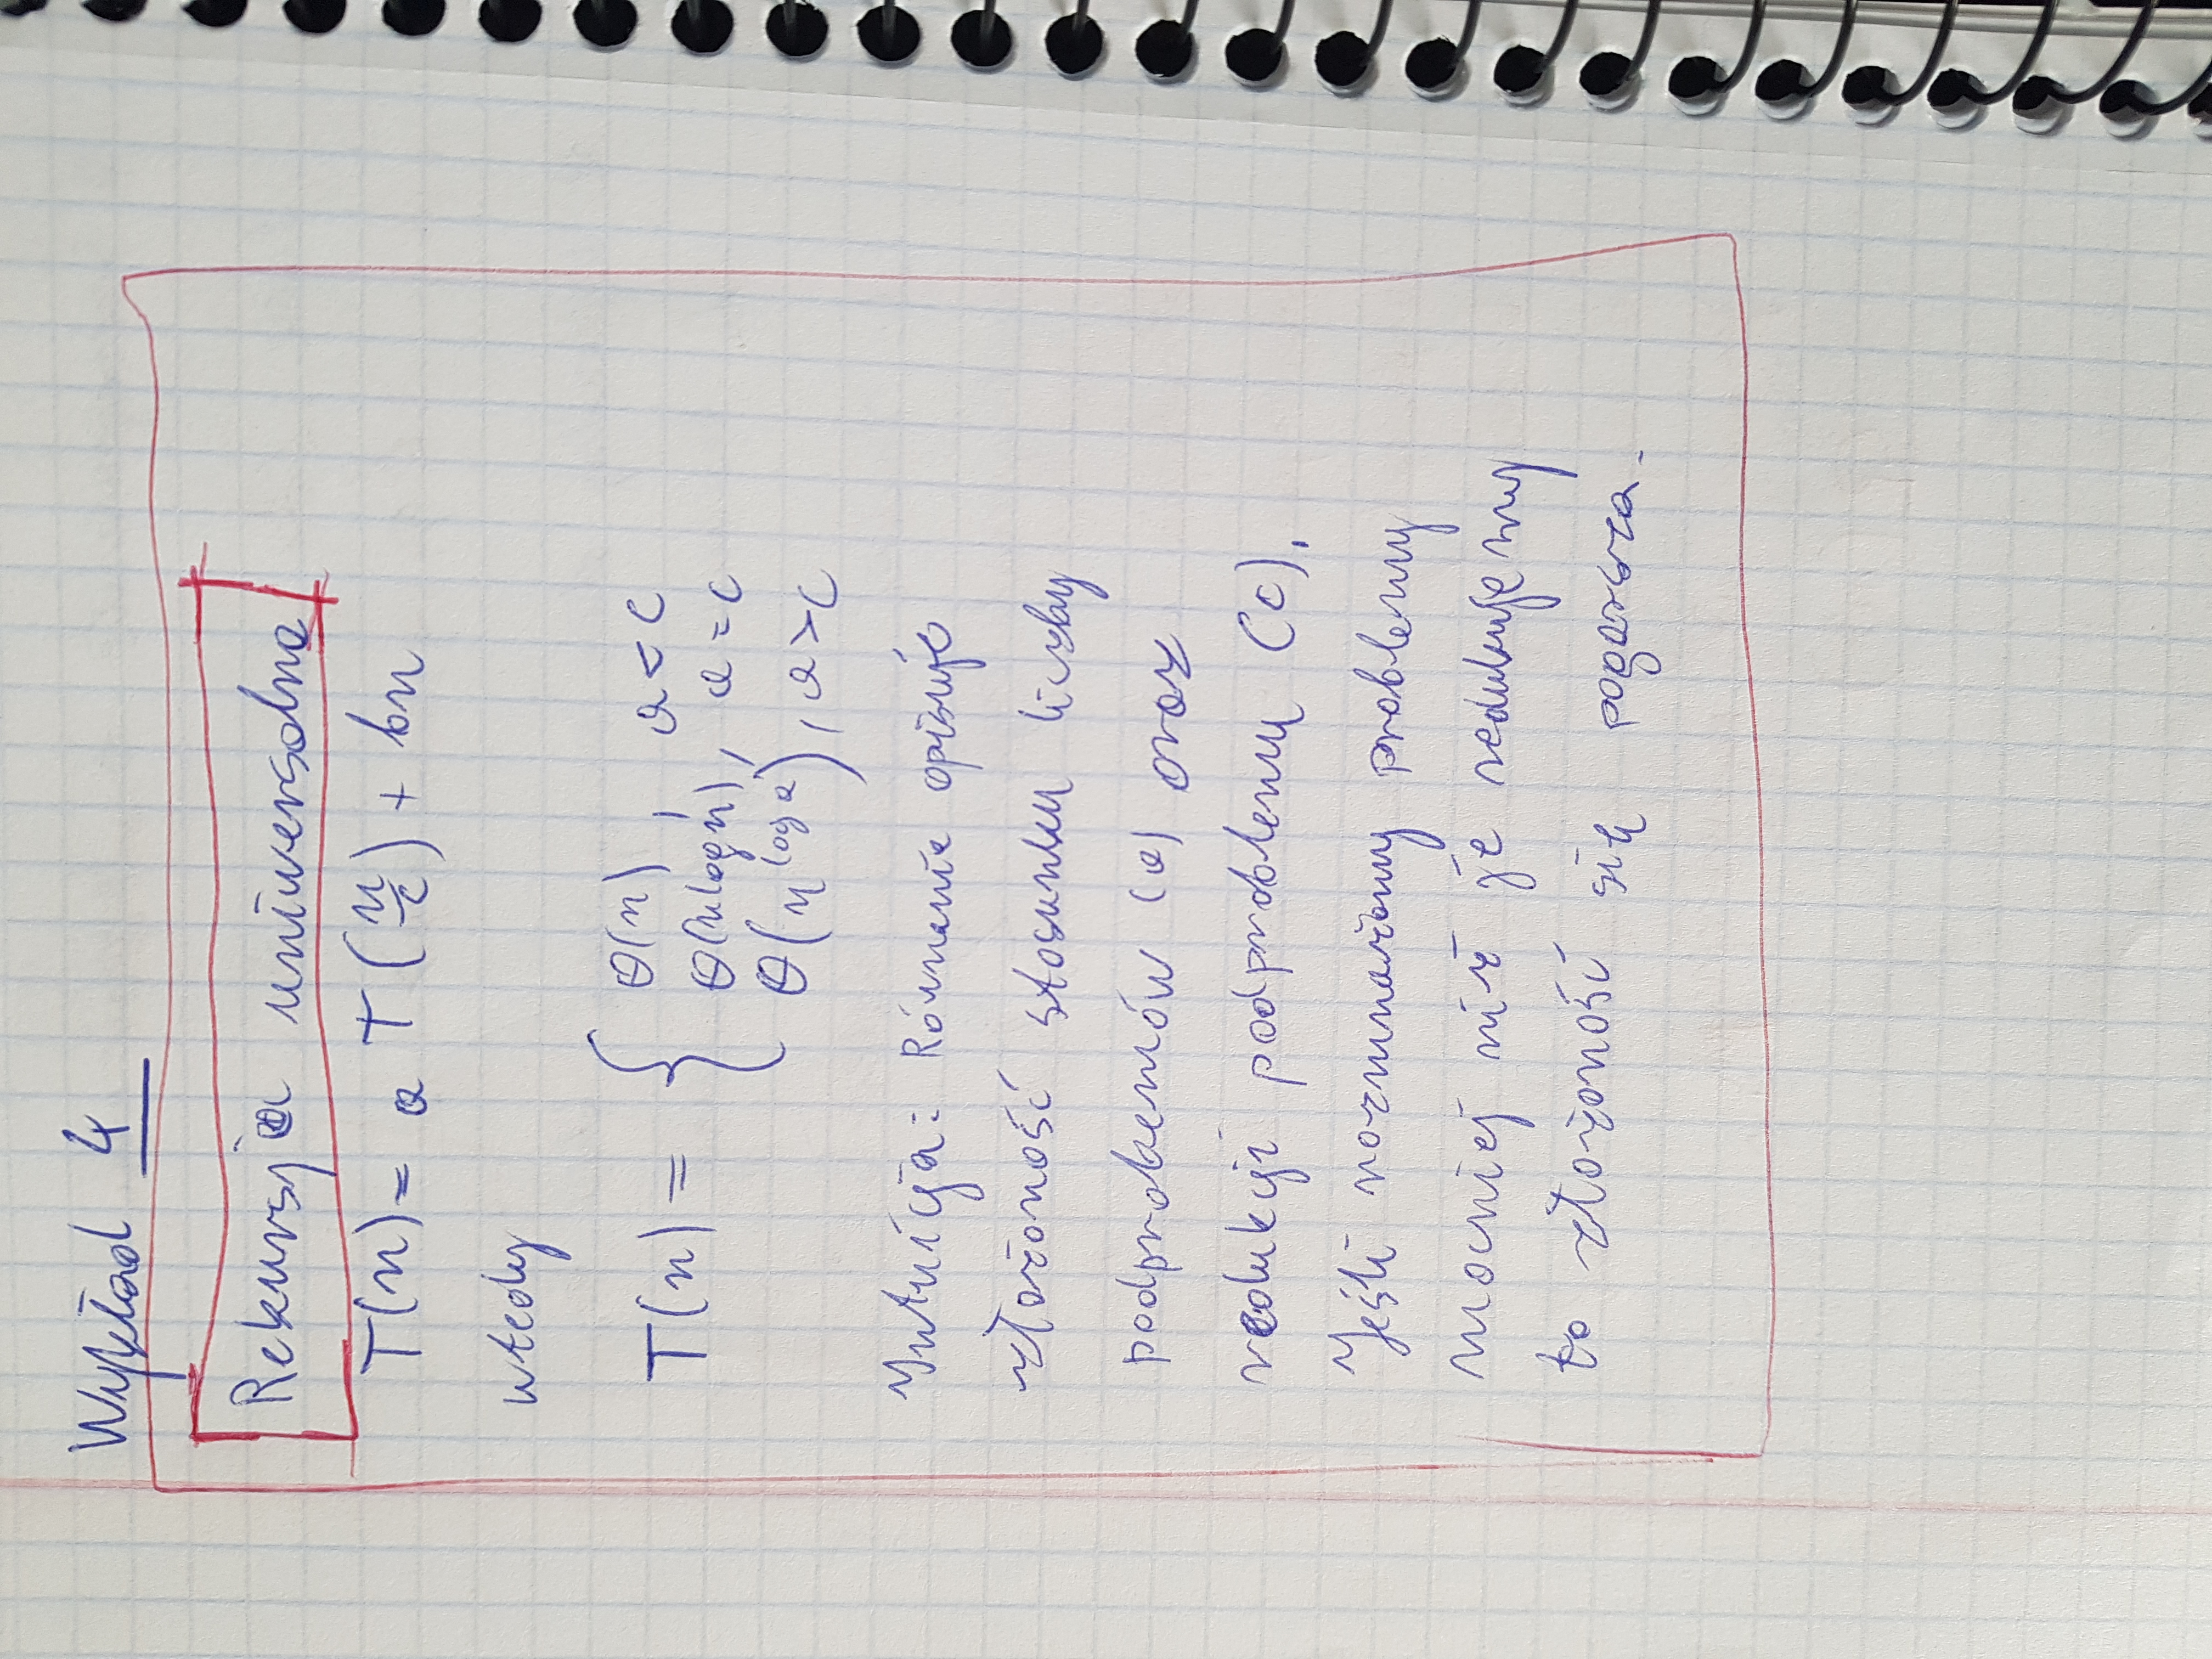 Wykład 4
Rekursja uniwersalna
T(n) = a T(n/c) + bn
wtedy
T(n) = { Θ(n), a < c
Θ(n log n), a = c
Θ(n^log a), a > c
Intuicja: Równanie opisuje
złożoność stosunku liczby
podprobemów (a) oraz
redukcji podproblemu (c).
Jeśli rozmnażamy problemy
mocniej niż je redukujemy
to złożoność się pogarsza.